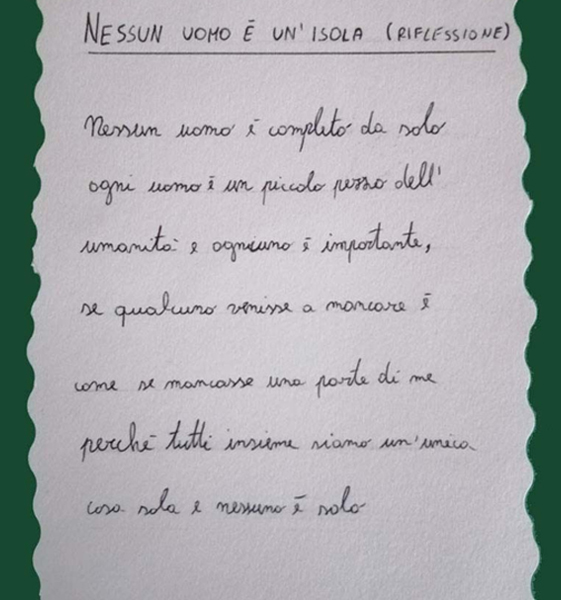 NESSUN UOMO È UN'ISOLA (RIFLESSIONE)
Nessun uomo è completo da solo
ogni uomo è un piccolo pezzo dell'
umanità e ogniuno è importante,
se qualcuno venisse a mancare è
come se mancasse una parte di me
perché tutti insieme siamo un'unica
cosa sola e nessuno è solo